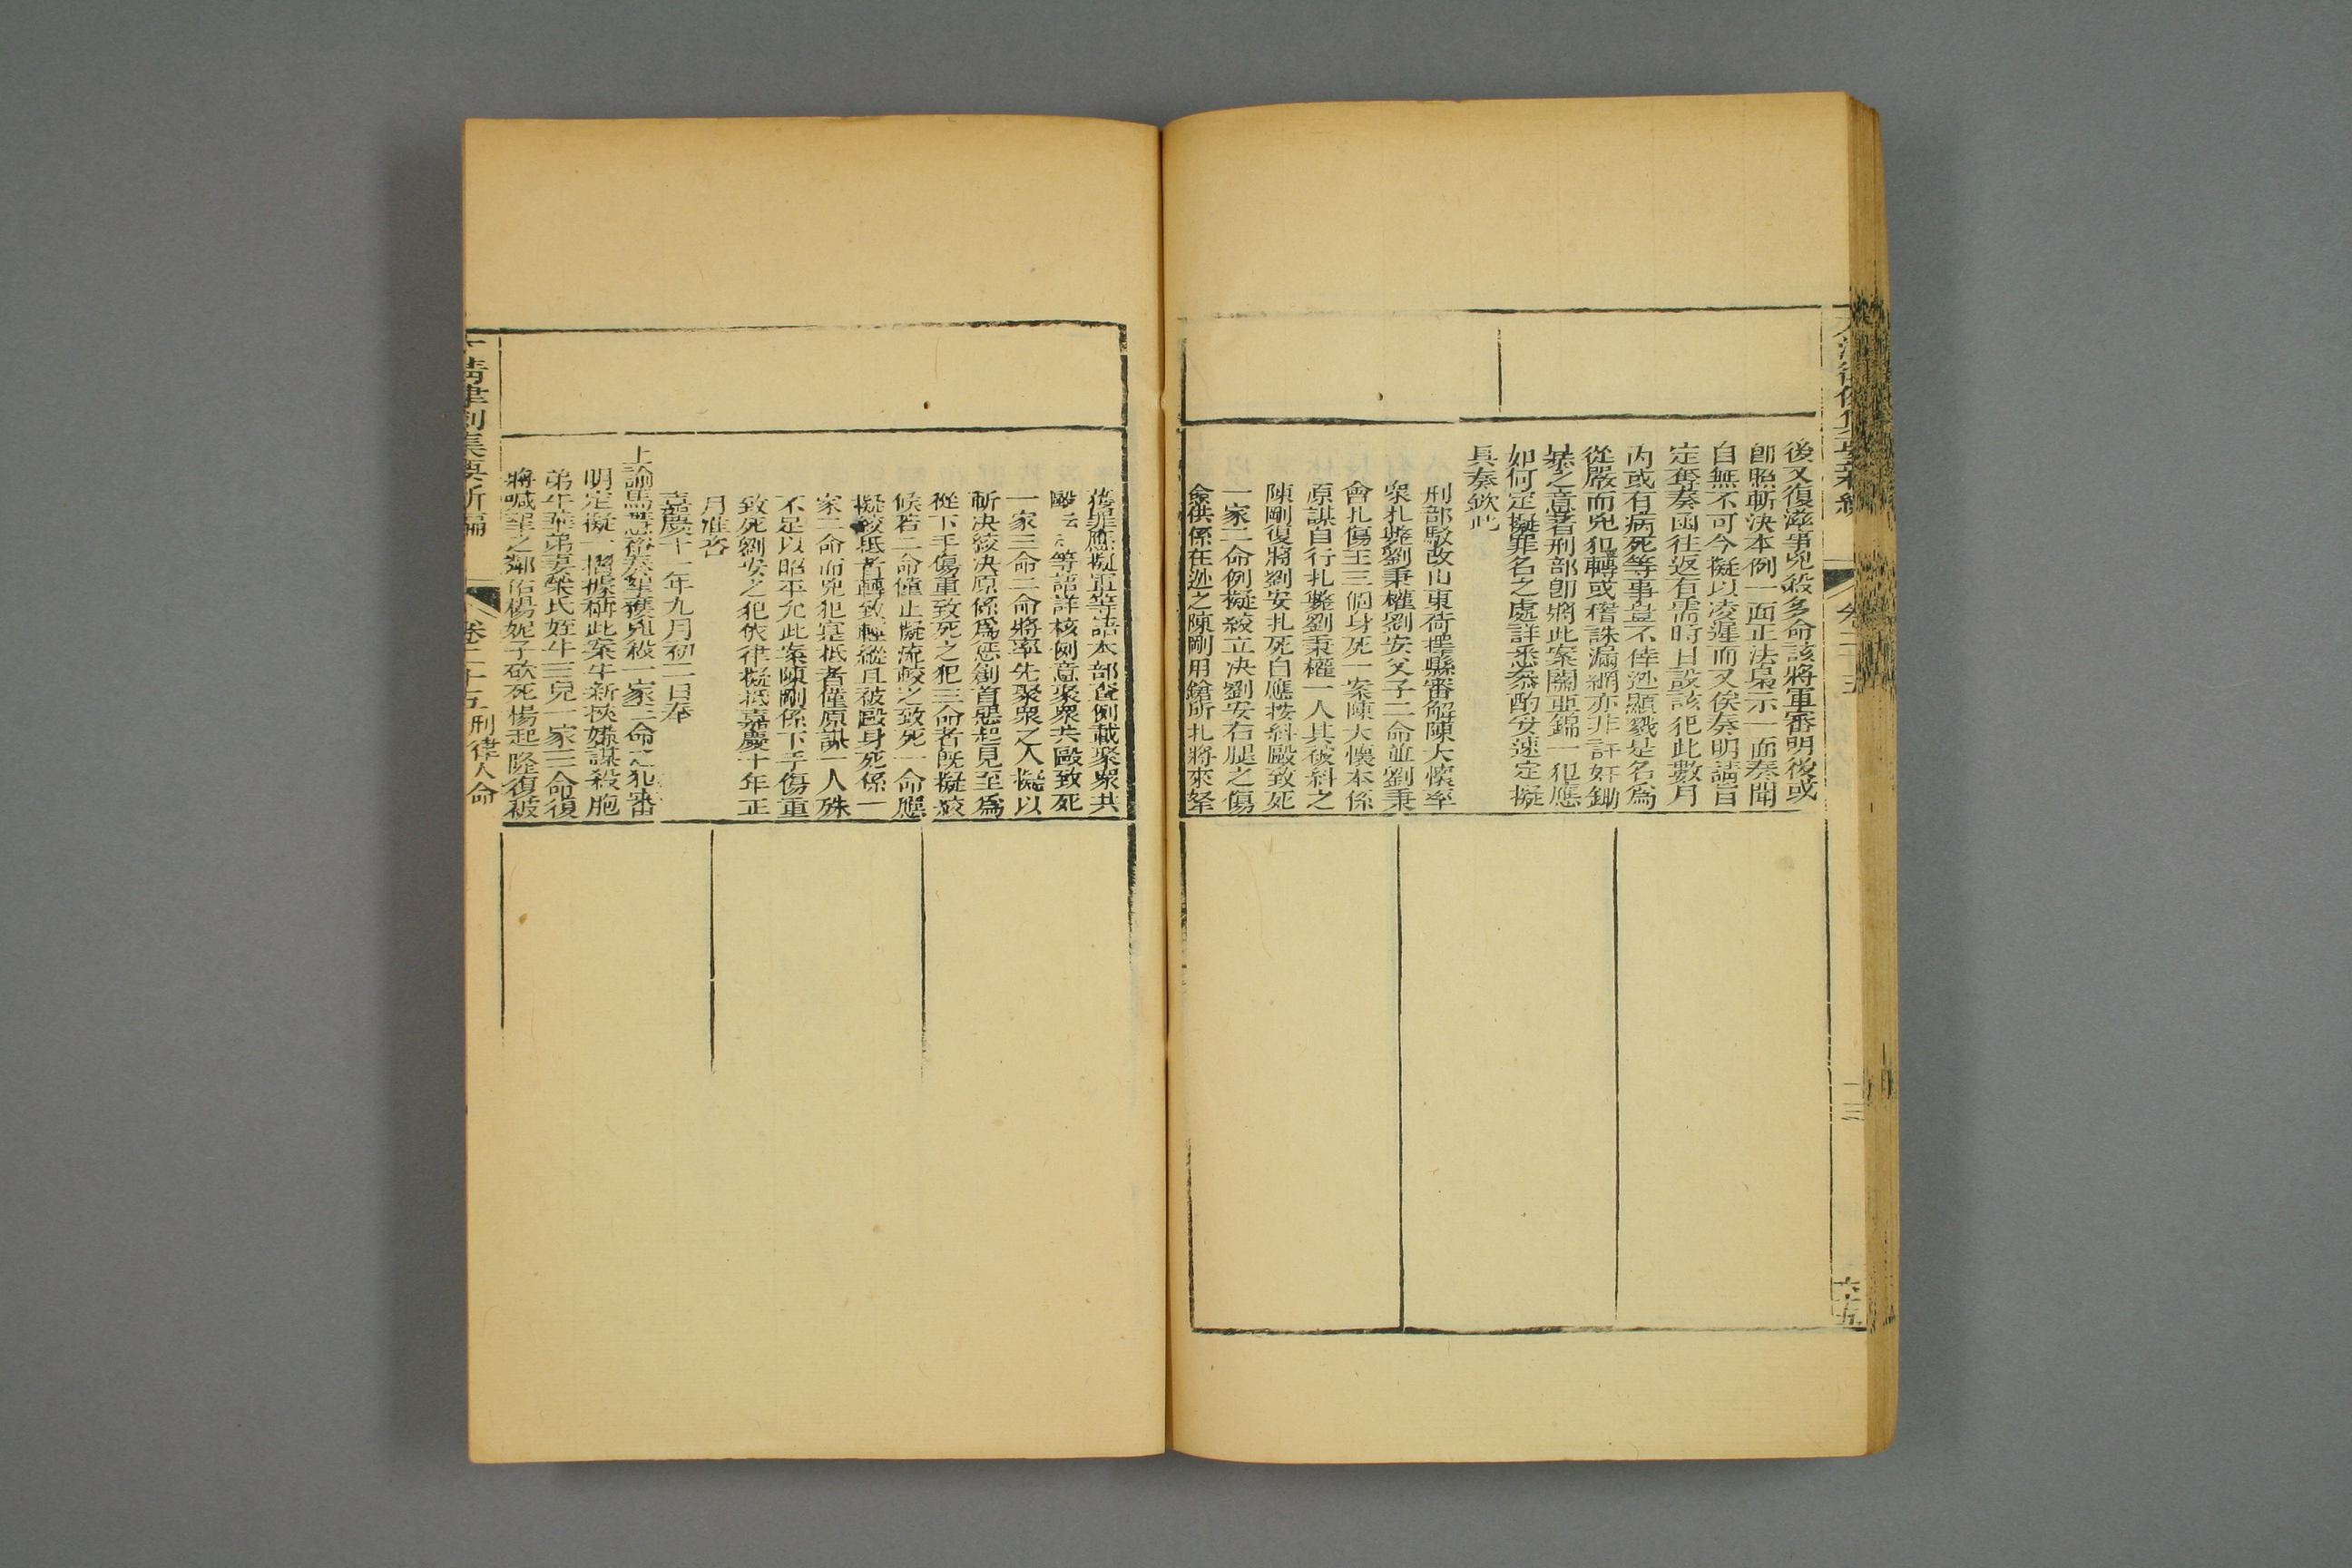 後又復滋事兇殺多命該將軍審明後或
卽照斬決本例一面正法梟示一面奏聞
自無不可今擬以凌遲而又俟奏明請旨
定奪奏函往返有需時日設該犯此數月
內或有病死等事豈不倖逃顯戮是名爲
從嚴而兇犯轉或稽誅漏網亦非訐奸鋤
暴之意著刑部卽將此案關亜錦一犯應
如何定擬罪名之處詳悉叅酌妥速定擬
具奏欽此
刑部駁改山東荷擇縣審解陳大懷率
衆扎斃劉秉權劉安父子二命並劉秉
會扎傷王三個身死一案陳大懷本係
原謀自行扎斃劉秉權一人其被糾之
陳剛復將劉安扎死自應按糾毆致死
一家二命例擬絞立决劉安右腿之傷
僉供係在逃之陳剛用鎗所扎將來拏
大清律例集要新編
卷二十五
十三
六十五
獲罪應擬軍等語本部查例載聚衆共
毆 等語詳核例意聚衆共毆致死
一家三命二命將率先聚衆之人擬以
斬决絞决原係爲惩創首惡起見至爲
從下手傷重致死之犯三命者旣擬絞
候若二命僅止擬流較之致死一命應
擬絞抵者轉致輕縱且被毆身死係一
家二命而兇犯寔抵者僅原謀一人殊
不足以昭平允此案陳剛係下手傷重
致死劉安之犯依律擬抵嘉慶十年正
月准咨
嘉慶十一年九月初二日奉
上諭馬慧裕奏拏獲兇殺一家三命之犯審
明定擬一摺據稱此案牛新挾嫌謀殺胞
弟牛華弟妻柴氏姪牛三兒一家三命復
將喊罪之鄰佑楊妮子砍死楊起隆復被
清律例集要新編
卷二十五
刑律人命